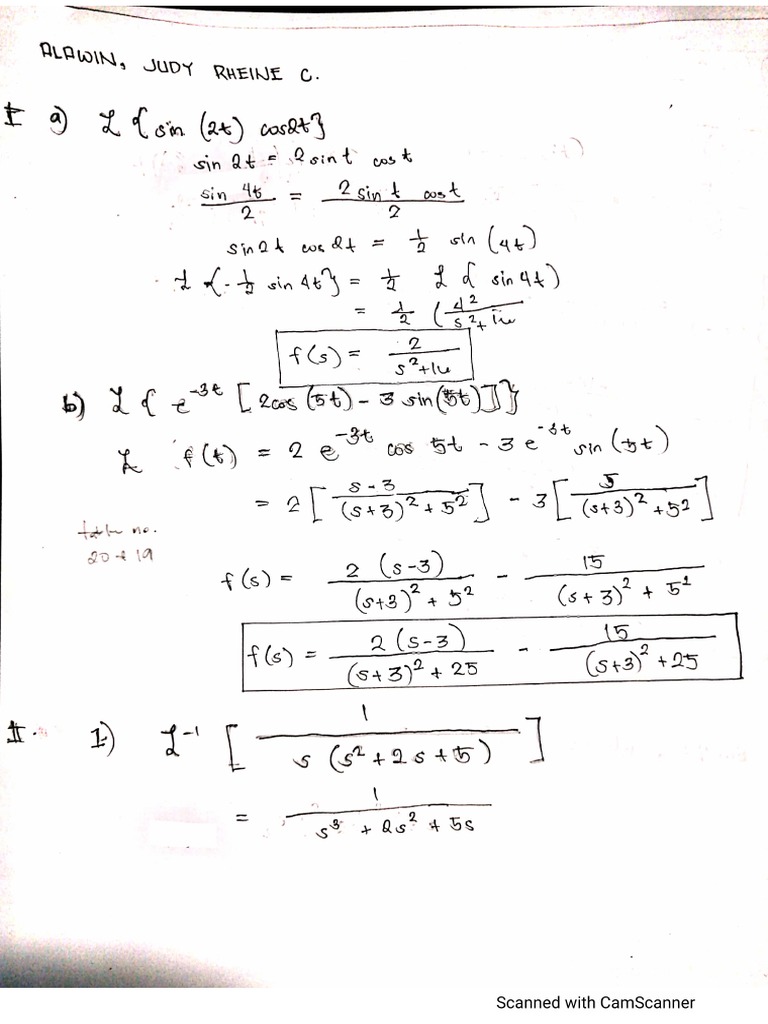 ALAWIN, JUDY RHEINE C.
I a) L {sin (2t) cos2t}
sin 2t = 2 sin t cos t
sin 4t / 2 = 2 sin t cos t / 2
sin 2t cos 2t = 1/2 sin (4t)
L {- 1/2 sin 4t} = 1/2 L { sin 4t)
= 1/2 ( 4² / s² + 16
f(s) = 2 / s² + 16
b) L { e^-3t [2cos (5t) - 3 sin(5t)]}
L f(t) = 2 e^-3t cos 5t - 3 e^-3t sin (5t)
= 2 [ s-3 / (s+3)² + 5² ] - 3 [ 5 / (s+3)² + 5² ]
table no.
20 & 19
f(s) = 2 (s-3) / (s+3)² + 5² - 15 / (s+3)² + 5²
f(s) = 2 (s-3) / (s+3)² + 25 - 15 / (s+3)² + 25
II. 1) L^-1 [ 1 / s (s² + 2s + 5) ]
= 1 / s³ + 2s² + 5s
Scanned with CamScanner